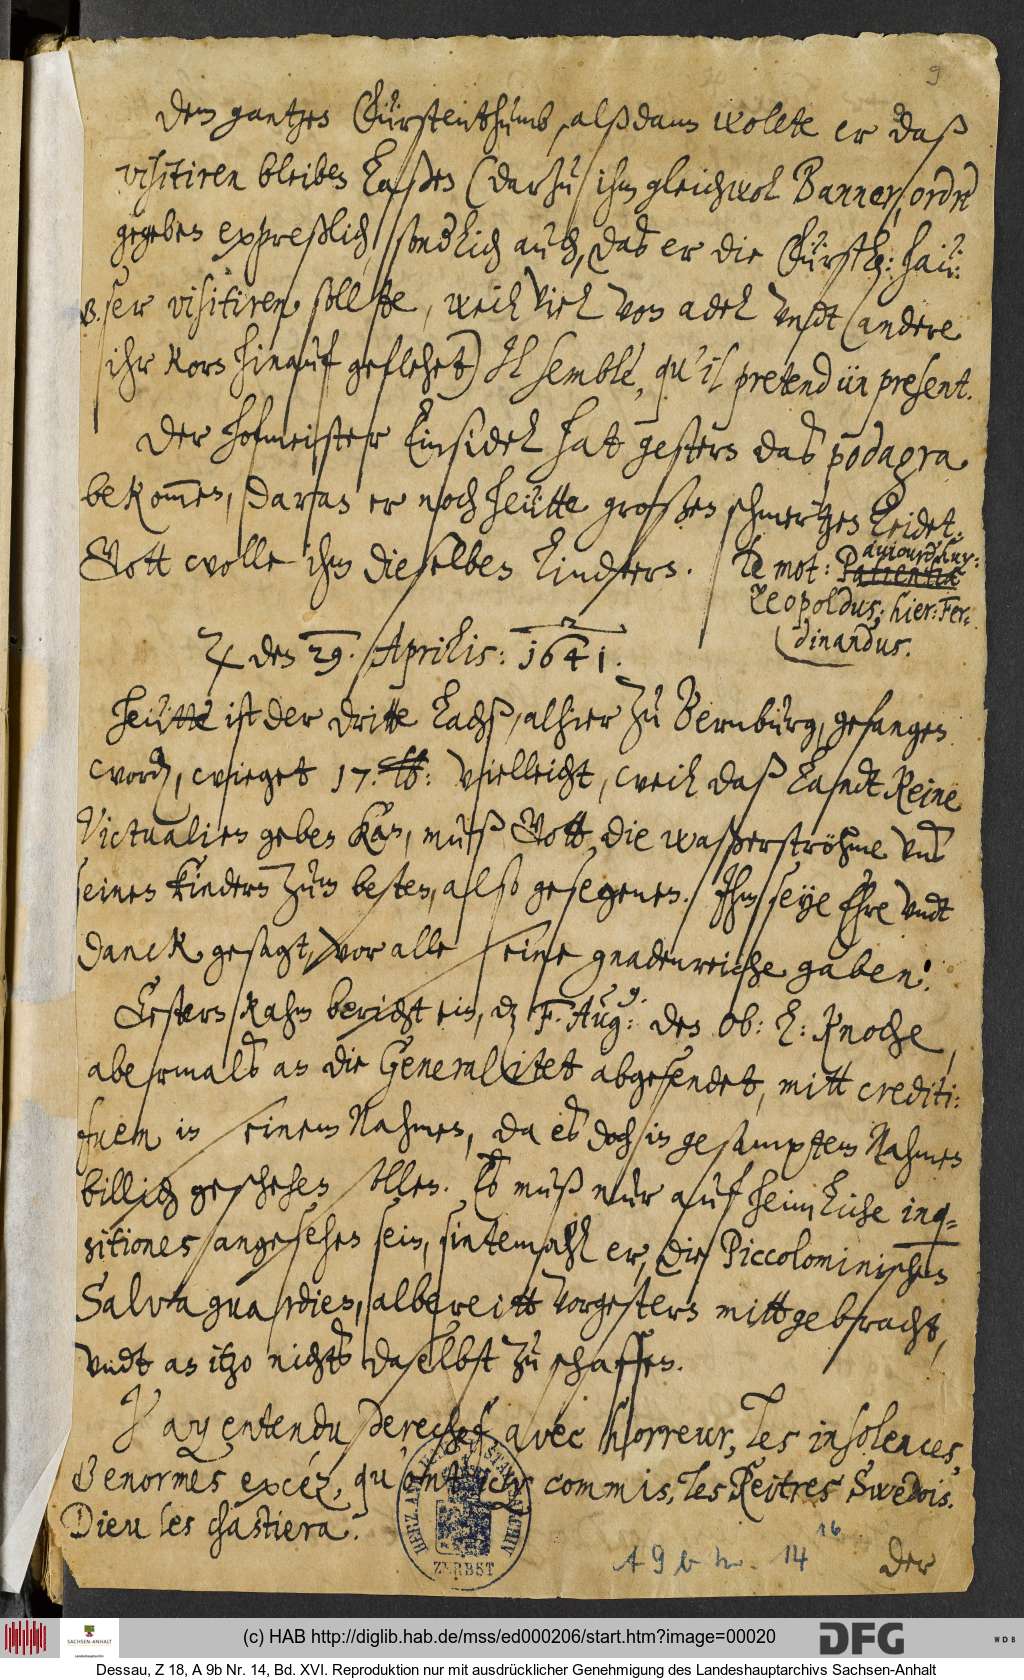 9
dem gantzen Fürstenthumb, alßdann wollte er daß
visitiren bleiben laßen (darzu ihm gleichwol Banner, ordre
gegeben expreßlich, sonderlich auch, das er die Fürstl: häu:
ser visitiren sollte, weil viel von adel undt andere
ihr Korn hinauf geflehet) Il semble, qu'il pretend ün present.
Der hofmeister Einsidel hat gestern das podagra
bekommen, daran er noch heütte großen schmertzen leidet,
Gott wolle ihm dieselben lindern. Le mot: Patientia
aujourd'huy:
Leopoldus; hier: Fer-
dinandus.
♃ den 29. Aprilis: 1641.
Heütte ist der dritte Lachß, alhier zu Bernburg, gefangen
word, wieget 17. lb: vielleicht, weil daß landt keine
Victualien geben kan, muß Gott, die waßerströhme undt
seinen kindern zum besten, also gesegenen. Ihm seye Ehre undt
danck gesagt, vor alle seine gnadenreiche gaben!
Gestern kahm bericht ein, dz F. Aug: den Ob: L: Knoche,
abermals an die Generalitet abgesendet, mitt crediti:
fuem in seinem Nahmen, da es doch in gesampten Nahmen
billich geschehen sollen. Es muß nur auf heimliche inq-
sitiones angesehen sein, sintemahl er, die Piccolominischen
Salvaguardien, albereitt vorgestern mittgebracht,
undt an itzo nichts daselbst zu schaffen.
J'ay entendu derechef avec horreur, les insolences,
& enormes excéz, qu'ont icy commis, les Reitres Swedois.
Dieu les chastiera.
HERZ. ANHALT. STAATSARCHIV
ZERBST
A 9 b N. 14 16
Der
SACHSEN-ANHALT
(c) HAB http://diglib.hab.de/mss/ed000206/start.htm?image=00020
DFG
WDB
Dessau, Z 18, A 9b Nr. 14, Bd. XVI. Reproduktion nur mit ausdrücklicher Genehmigung des Landeshauptarchivs Sachsen-Anhalt